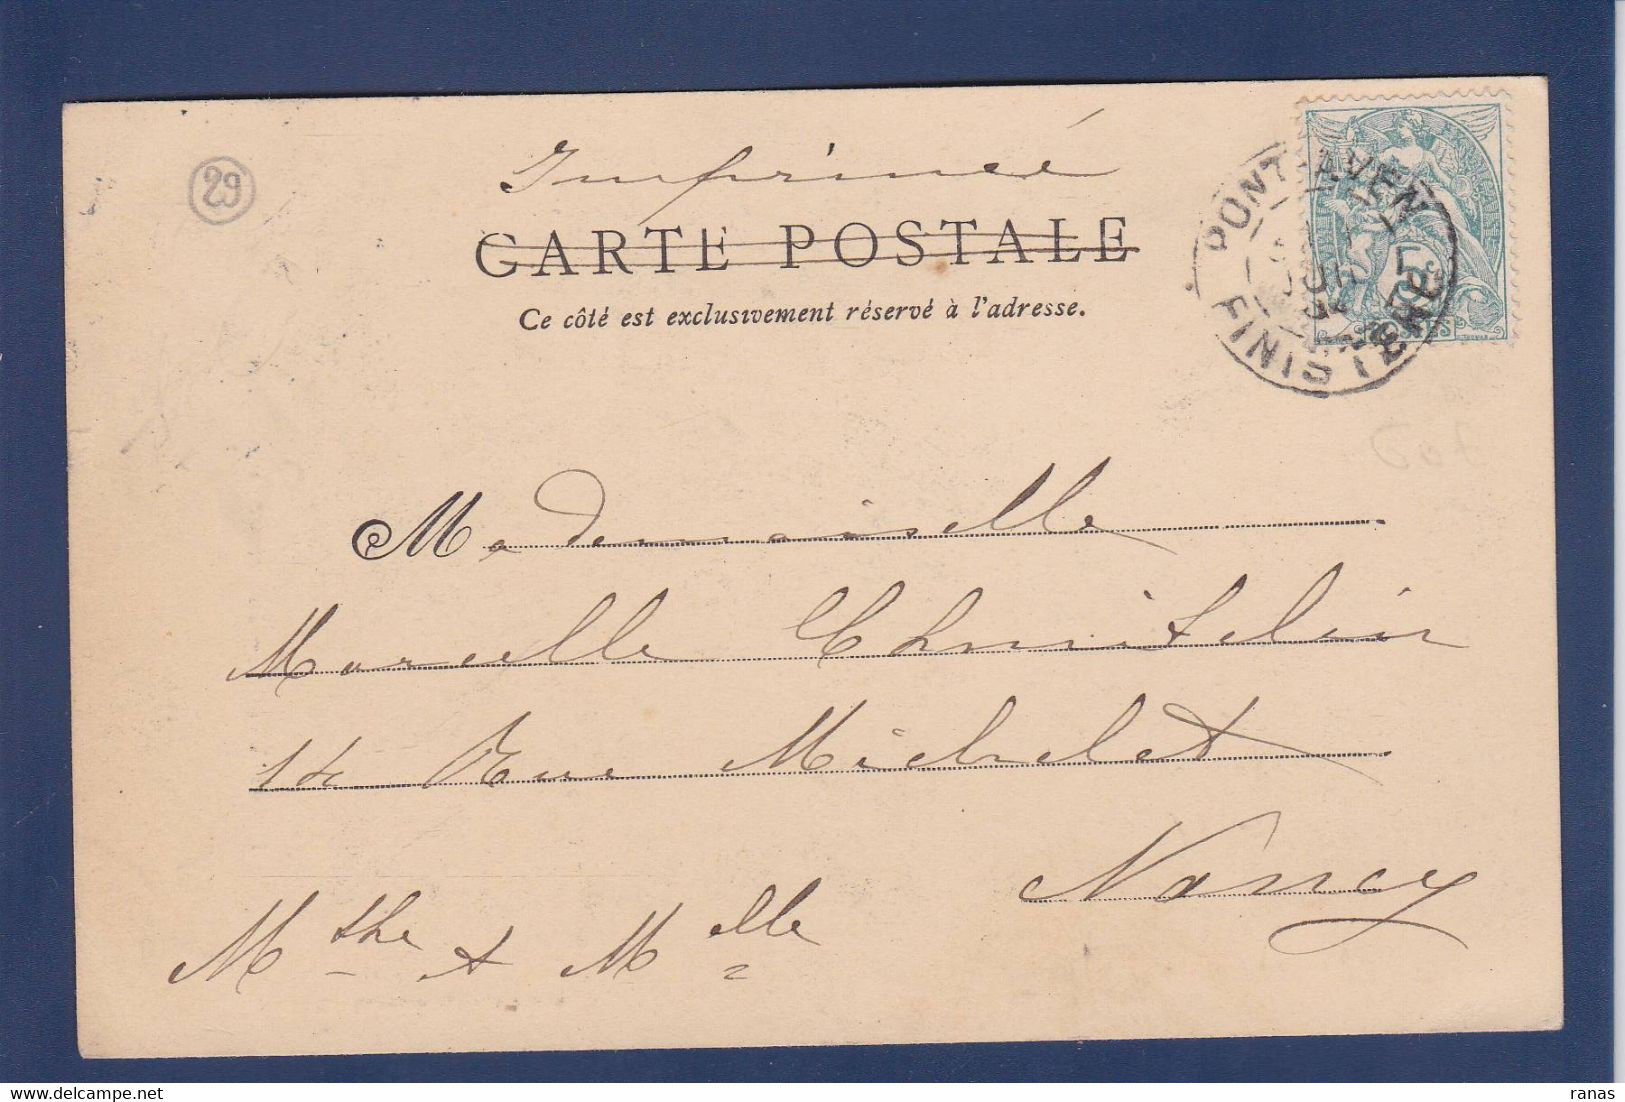 29
Imprimé
CARTE POSTALE
Ce côté est exclusivement réservé à l'adresse.
PONT-AVEN
FINISTÈRE
Mademoiselle
Marcelle
14 Rue Michelet
Nancy
Mthe & Melle
ranas